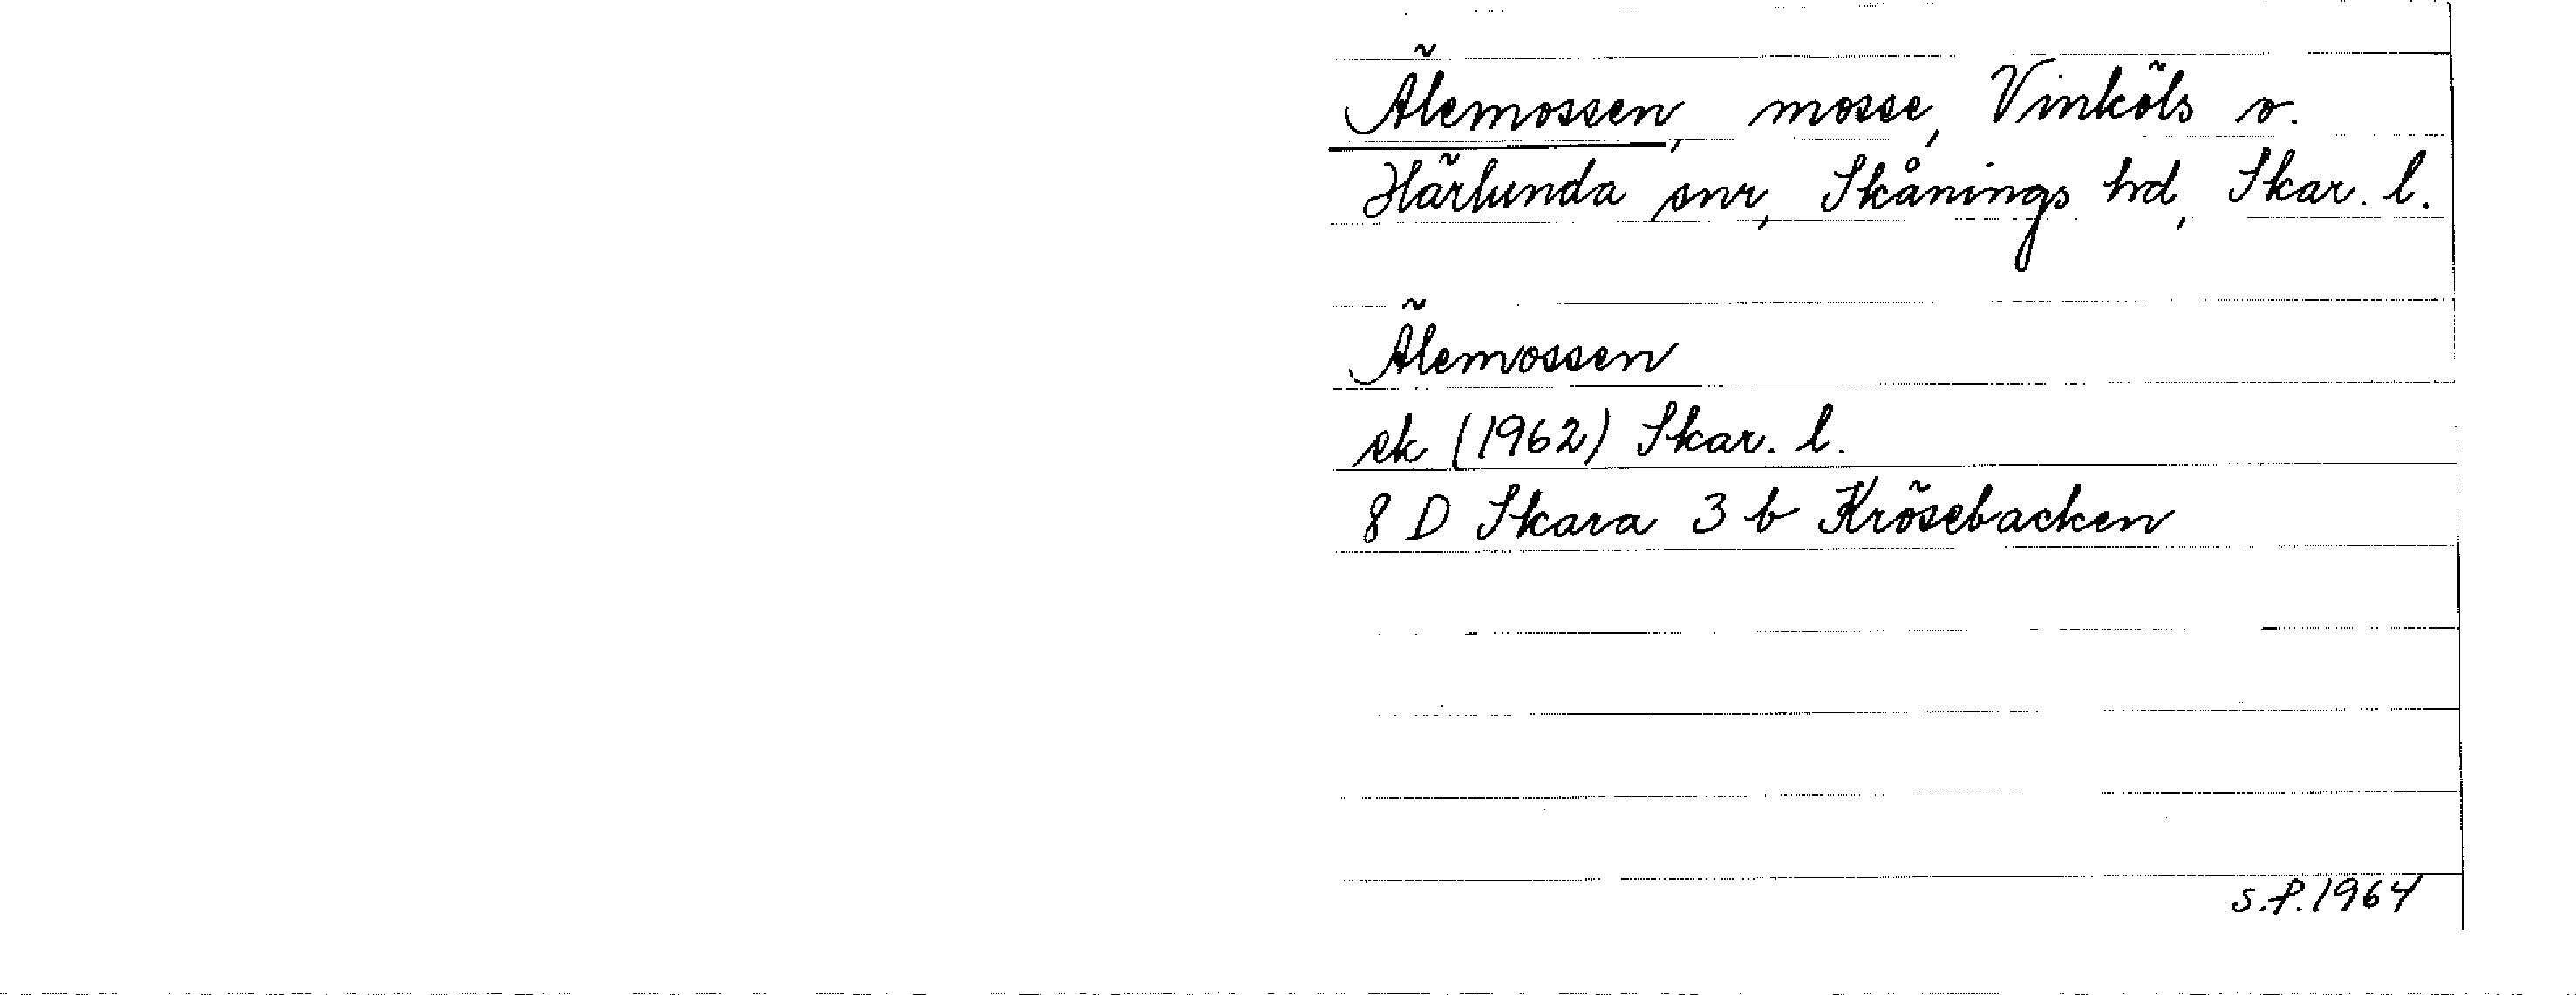 Älemossen, mosse, Vinköls o.
Härlunda snr, Skånings hd, Skar. l.
Älemossen
ek (1962) Skar. l.
8 D Skara 3 b Krösebacken
S.P. 1964